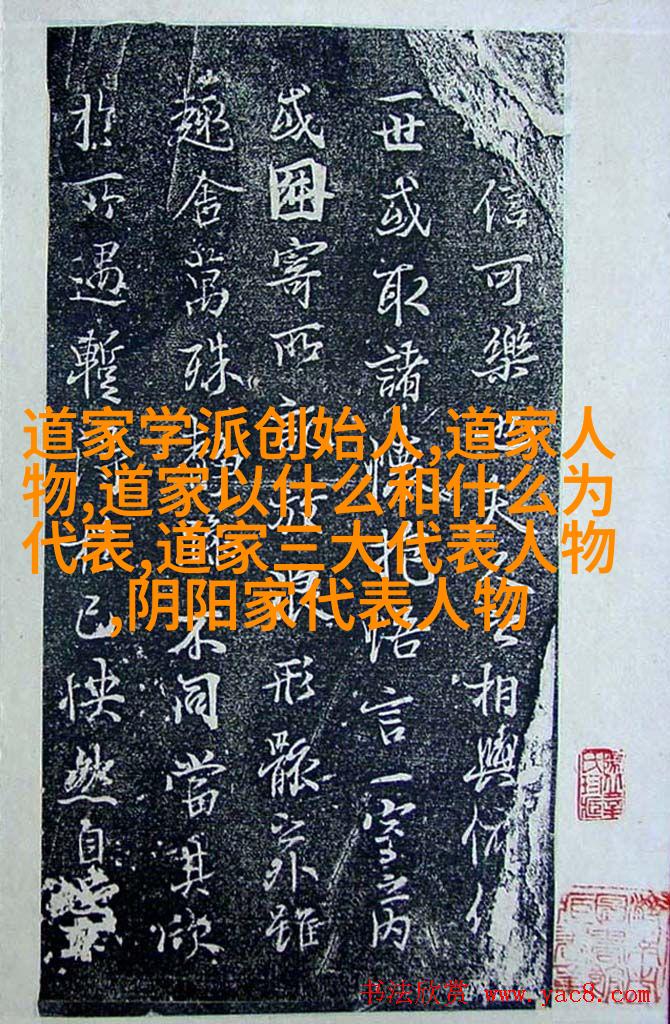 信可樂也夫人之相與俯仰
一世或取諸懷抱悟言一室之内
或因寄所託放浪形骸之外雖
趣舍萬殊静躁不同當其欣
於所遇暫得於己怏然自
道家学派创始人,道家人
物,道家以什么和什么为
代表,道家三大代表人物
,阴阳家代表人物
书法欣赏 www.yac8.com